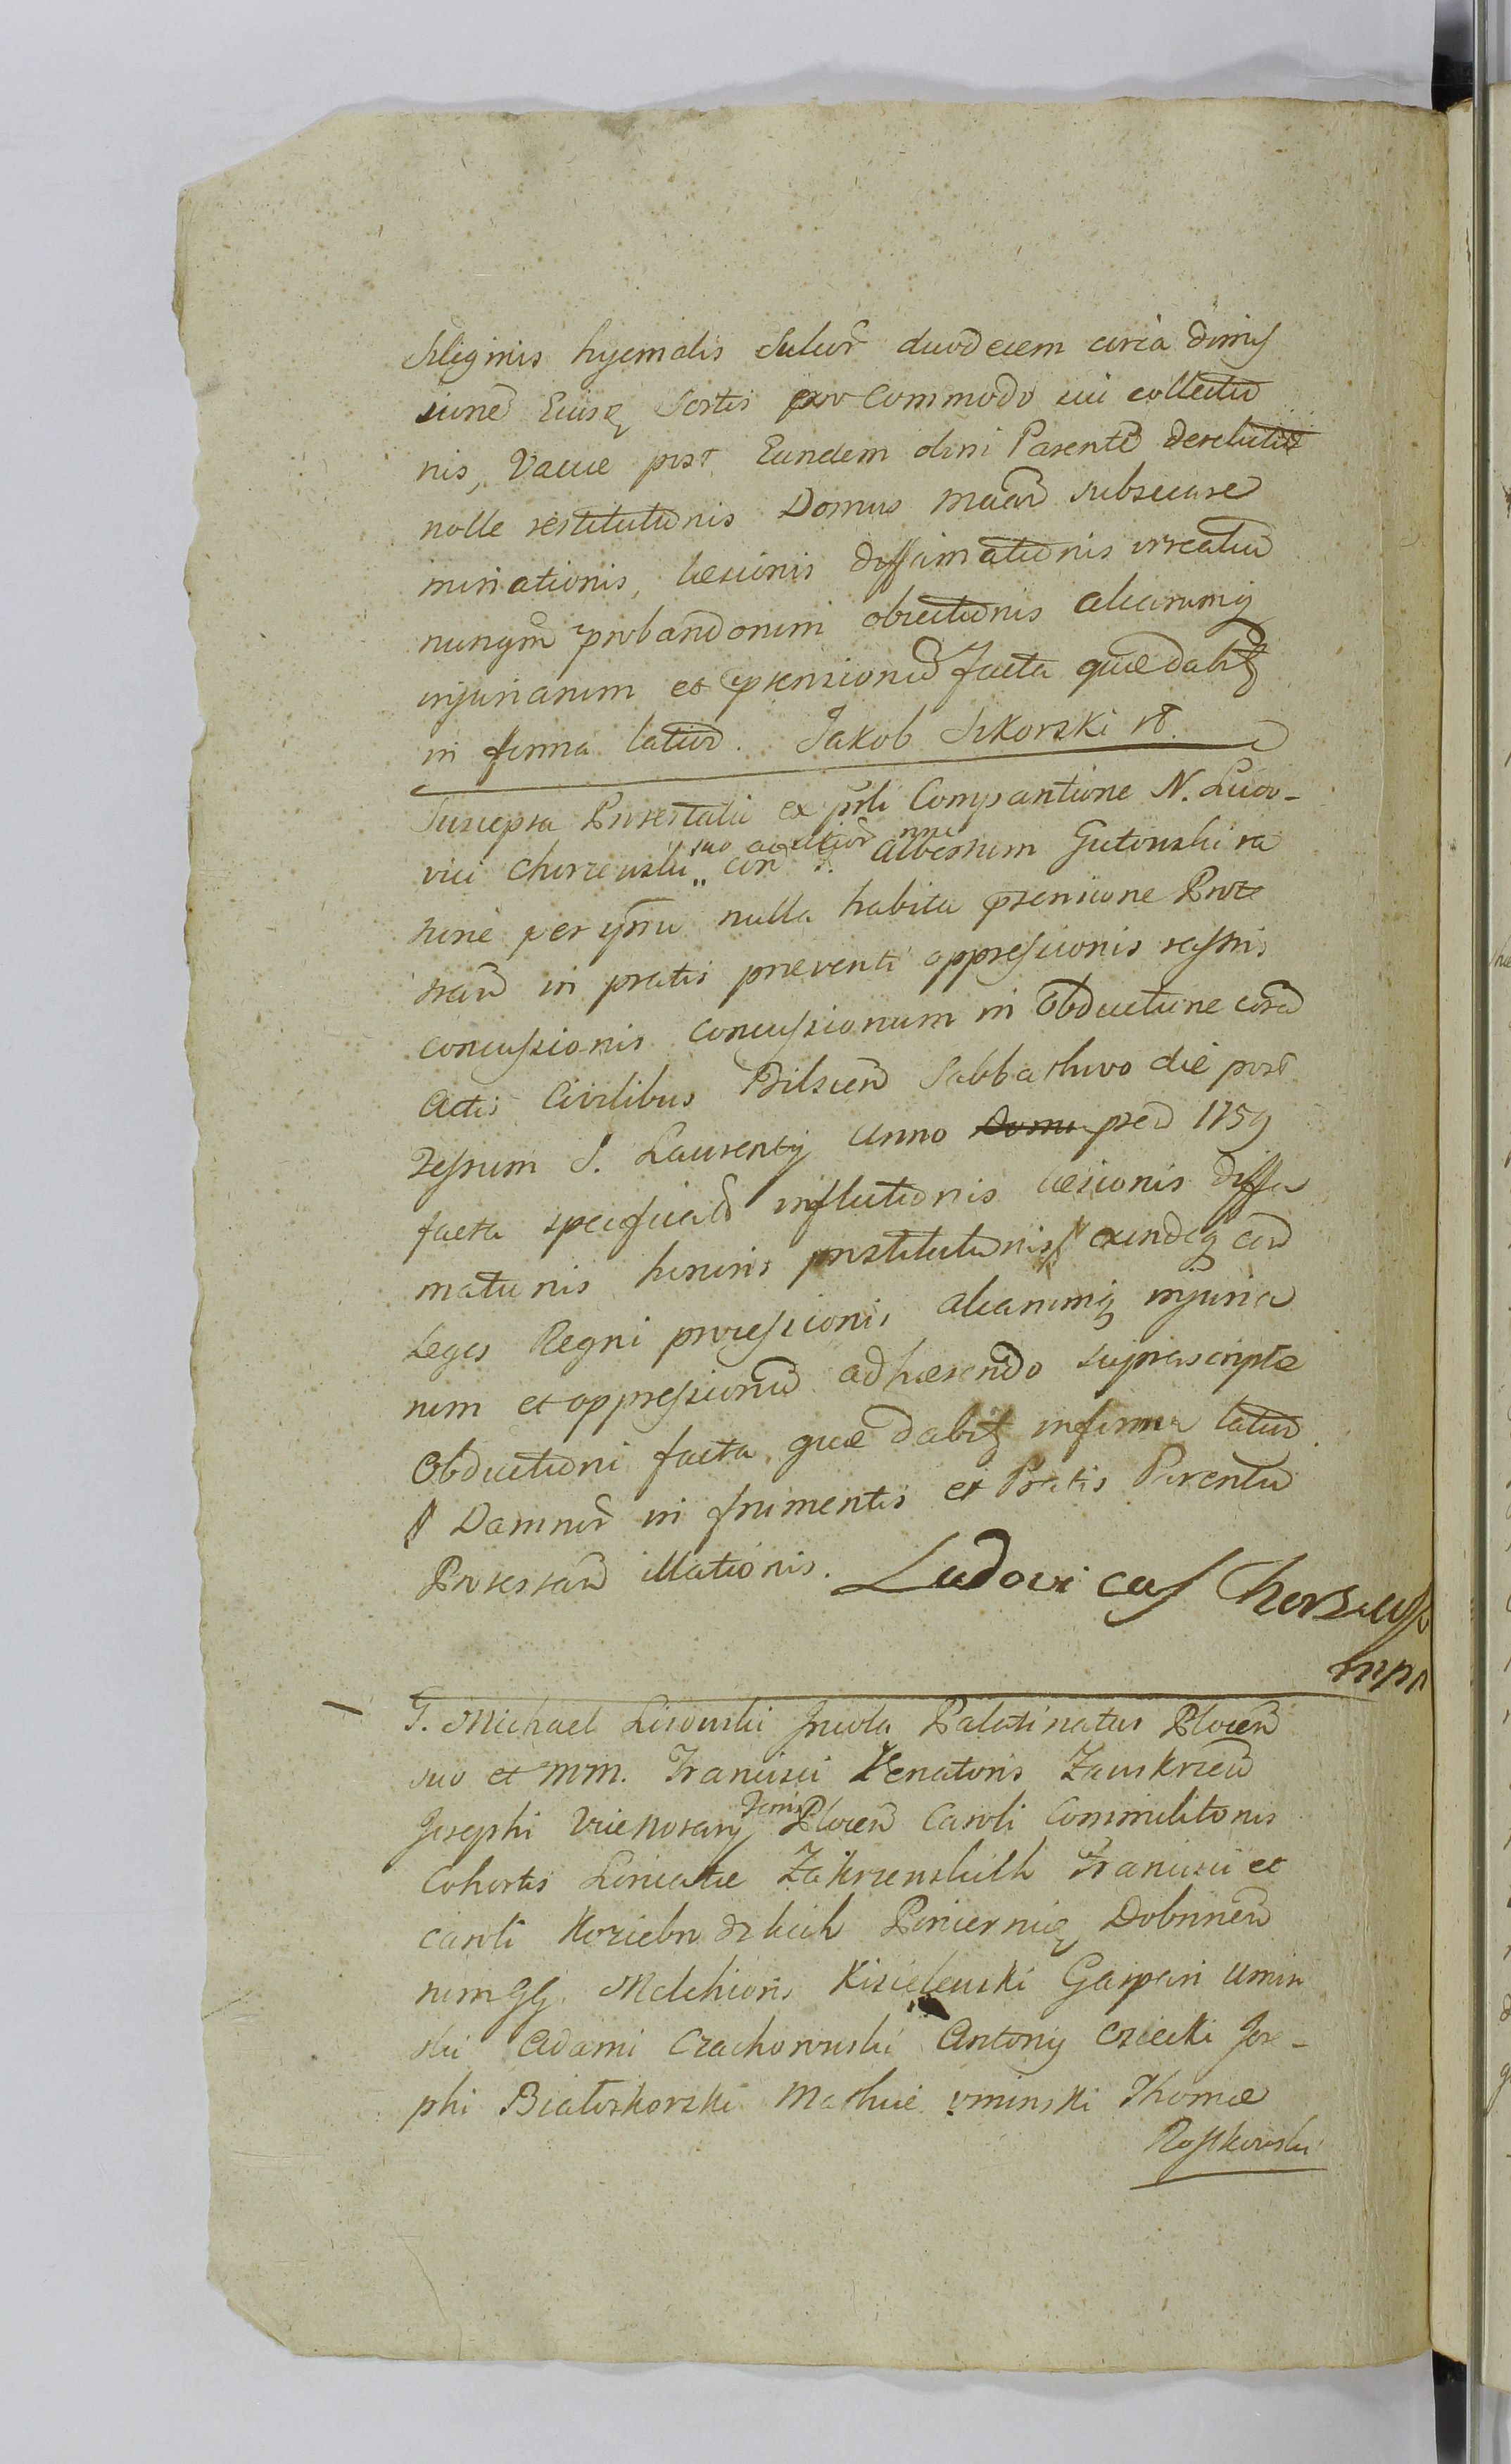 Siliginis hyemalis Sulcor duodecem circa dimis
sione Eiusq Sortis pro Commodo sui collectio
nis, Vacue post Eundem olim Parente derelictae
nolle restitutionis Domus subsecare
minationis, laesionis diffamationis irrealiu
nunqm probandorum obiectionis aliarumq
injuriarum et praensionu facta quae dabit
in forma latiu. Jakob Sikorski
Suscepta Protestatii ex prsli Compantione N. Ludo-
vici Chorzewski suo actorum nne con G. Albertum Gutowski ra
tione per ipsu nulla habita praensione Prote
stan in pratis preventi oppressionis
concussionis concussionum in Obductione cora
Actis Civilibus Bilscen Sabbathivo die post
Festum S. Laurentij Anno pred 1759
facta specificat inflictionis laesionis diffa
mationis honoris prostitutionis eundeq con
Leges Regni processionis aliarumq injuria
rum et oppressionu adhaerendo suprascriptae
Obductioni facta quae dabit in forma latiu.
Damnor in frumentis et Pratis Parentu
Protestan illationis. Ludovicus Chorzewski
mpp
G. Michael Lisowski Incola Palatinatus Plocen
suo et MM. Francisci Venatoris Zawskrzen
Josephi Vicenotarij Plocen Caroli Commilitonis
Cohortis Loricatae Zakrzewskich Francisci et
Caroli Koziebrodzkich Pincernic Dobrinen
num GG. Melchioris Kisielewski Gaspari Umin
ski Adami Czachorowski Antonij Czecki Jose-
phi Białoskorski Mathie Uminski Thomae
Rostkowski